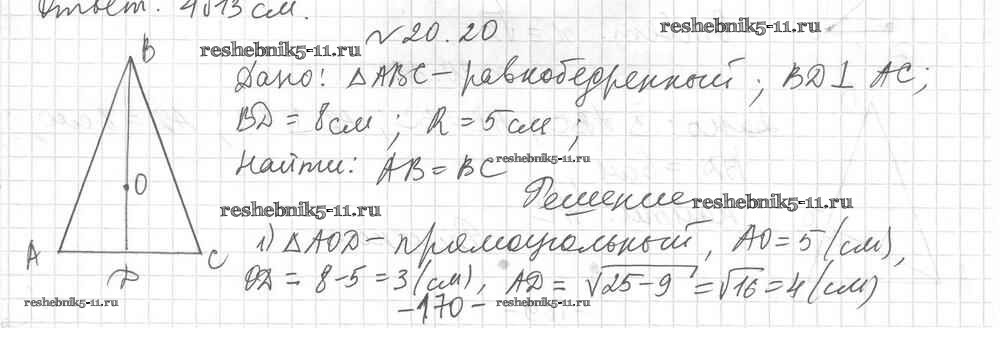 Ответ. 4√13 см.
№ 20.20
reshebnik5-11.ru
reshebnik5-11.ru
B
Дано: △ABC – равнобедренный; BD ⊥ AC;
BD = 8 см; R = 5 см;
Найти: AB = BC
reshebnik5-11.ru
O
Решение
reshebnik5-11.ru
reshebnik5-11.ru
1) △AOD – прямоугольный, AO = 5 (см),
A
C
D
OD = 8 - 5 = 3 (см), AD = √25 - 9 = √16 = 4 (см)
reshebnik5-11.ru
- 170 -
reshebnik5-11.ru